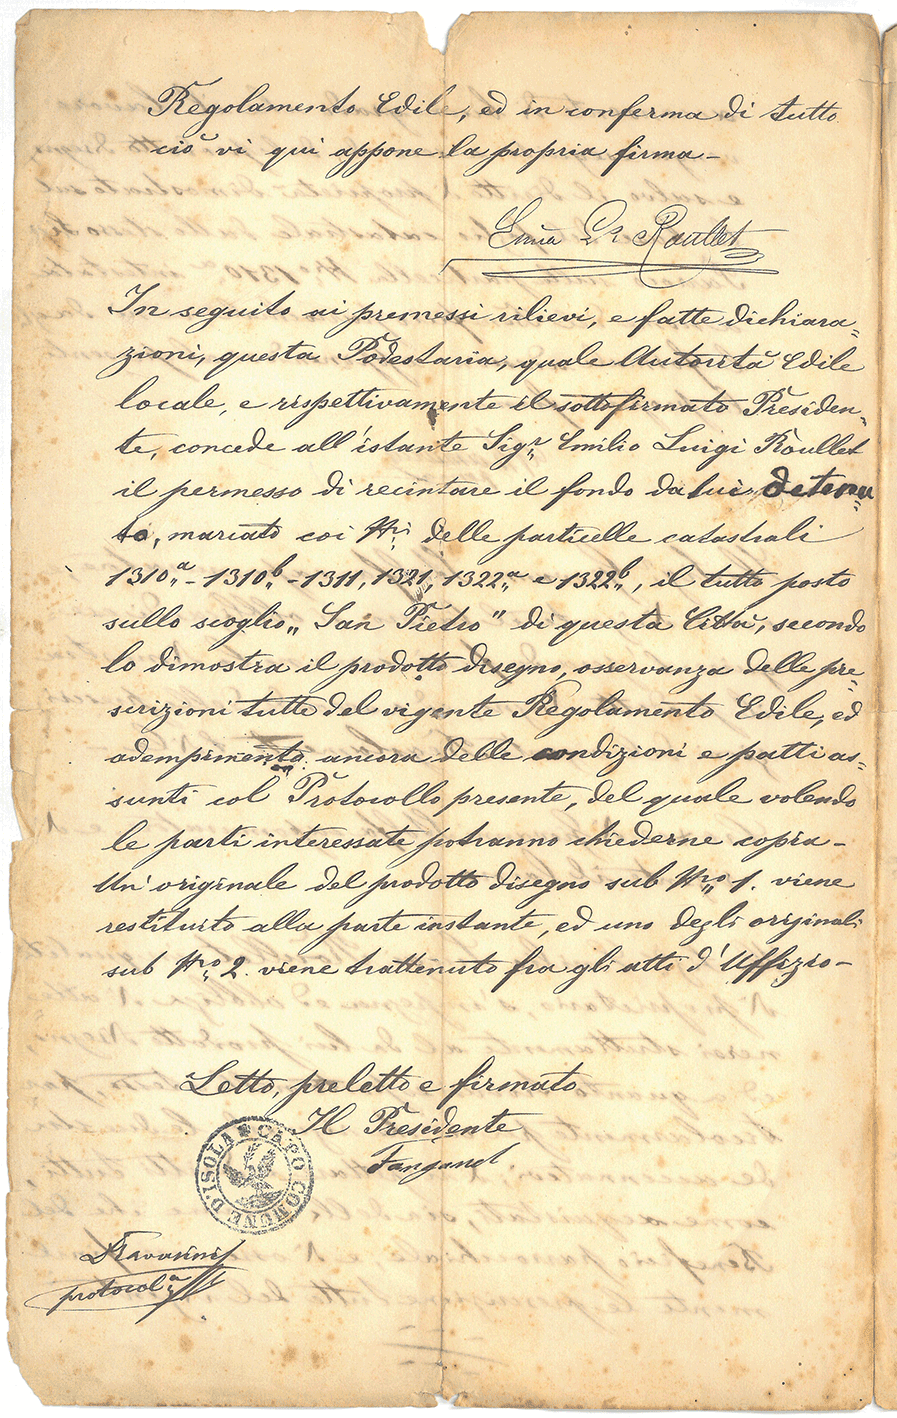 Regolamento Edile, ed in conferma di tutto
ciò vi qui appone la propria firma –
Roullet
In seguito ai premessi rilievi, e fatte dichiara=
zioni, questa Podestaria, quale Autorità Edile
locale, e rispettivamente il sottofirmato Presiden=
te, concede all'istante Sigr Emilio Luigi Roullet
il permesso di recintare il fondo da lui detenu=
to, marcato coi Nri delle particelle catastrali
1310a – 1310b – 1311, 1321, 1322a e 1322b, il tutto posto
sullo scoglio „San Pietro" di questa Città, secondo
lo dimostra il prodotto disegno, osservanza delle pre=
scrizioni tutte del vigente Regolamento Edile, ed
adempimento ancora delle condizioni e patti as=
sunti col Protocollo presente, del quale volendo
le parti interessate potranno chiederne copia –
Un'originale del prodotto disegno sub Nro 1. viene
restituito alla parte instante, ed uno degli originali
sub Nro 2. viene trattenuto fra gli atti d'Uffizio –
Letto, preletto e firmato
Il Presidente
CAPO COMUNE D'ISOLA
protocola